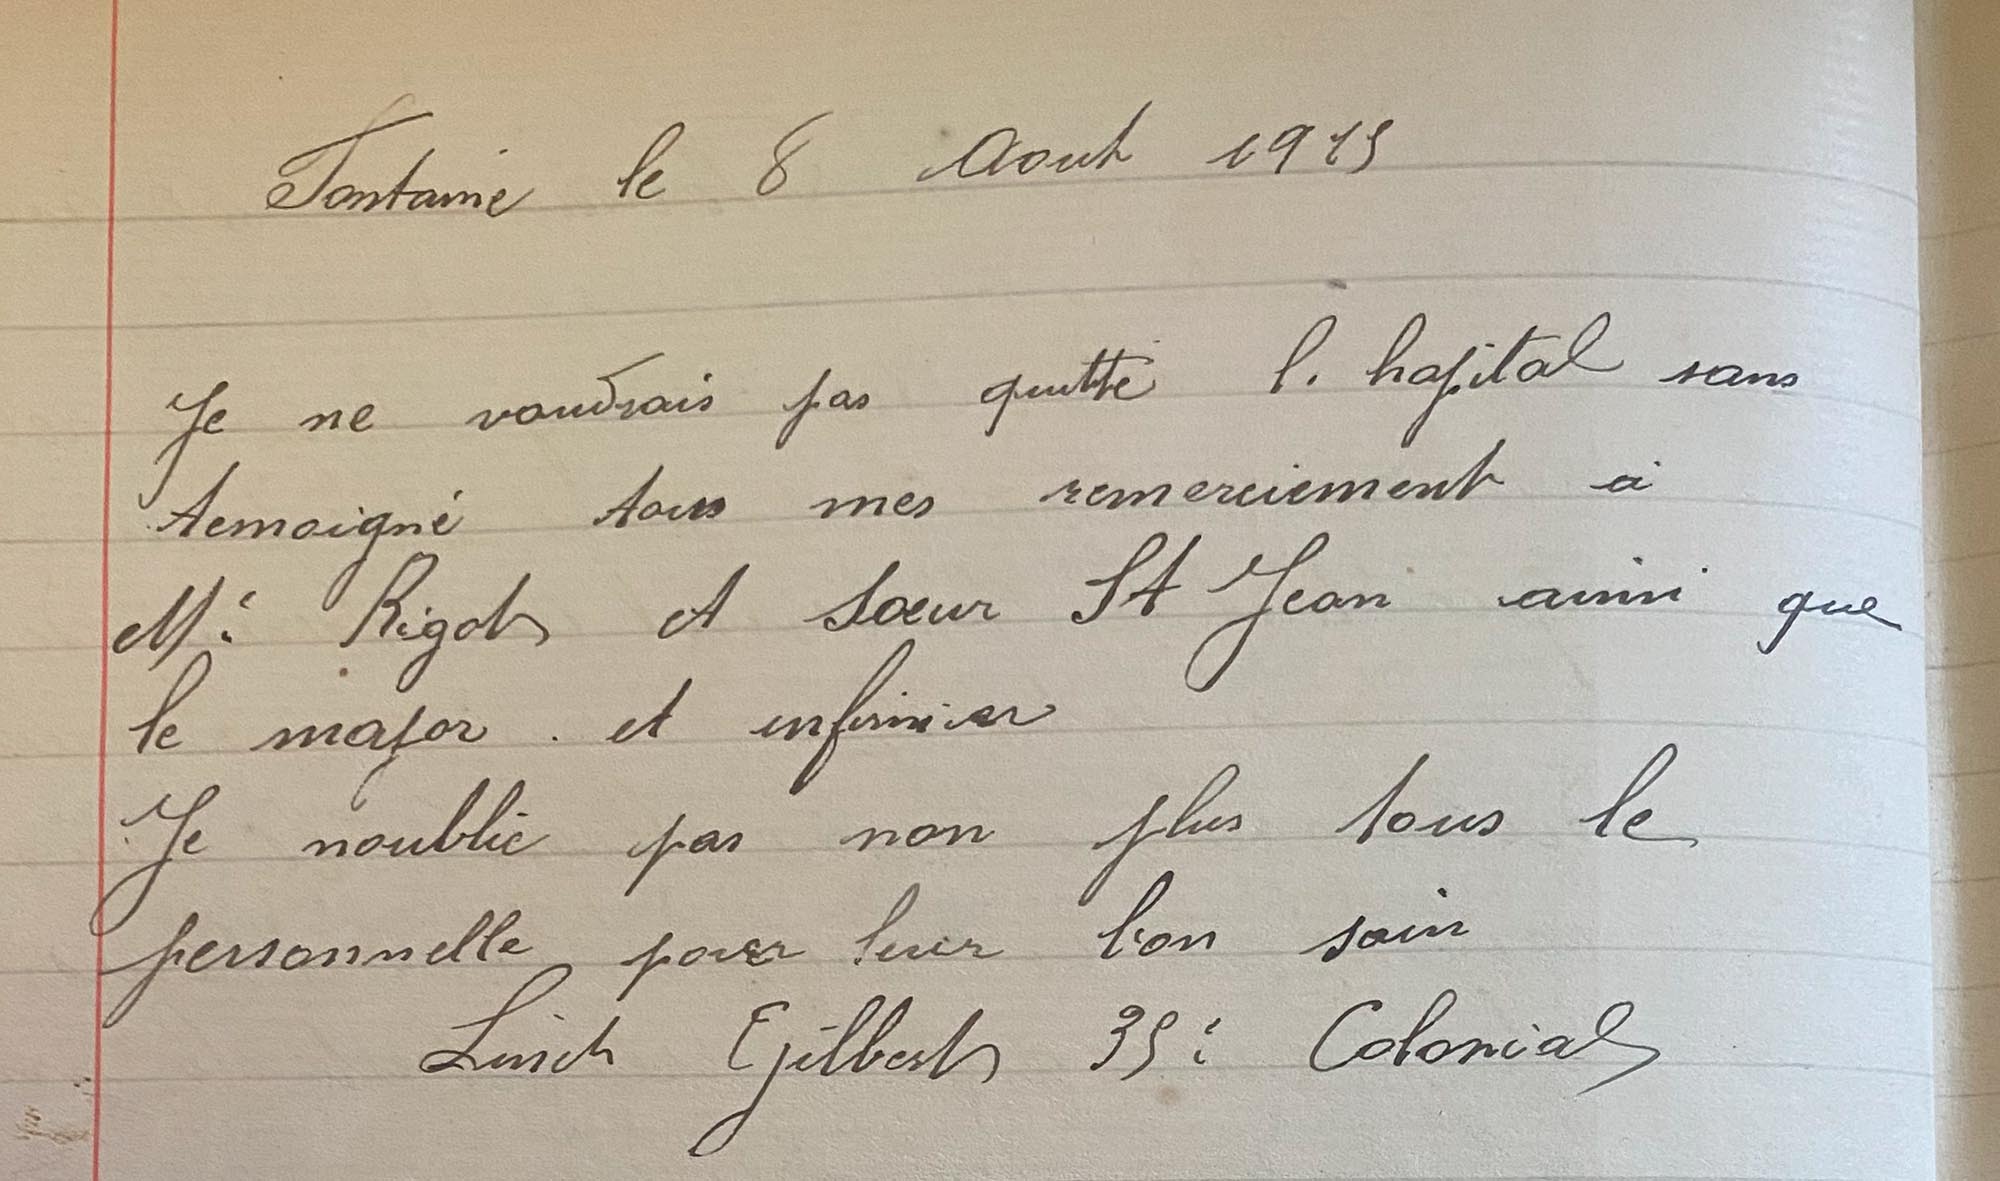 Fontaine le 8 Aout 1915
Je ne voudrais pas quitté l. hopital sans
temoigné tous mes remerciement à
Mr Rigot et sœur St Jean ainsi que
le major. et infirmier
Je noublie pas non plus tous le
personnelle pour leur bon soin
Gilbert 35e Colonial